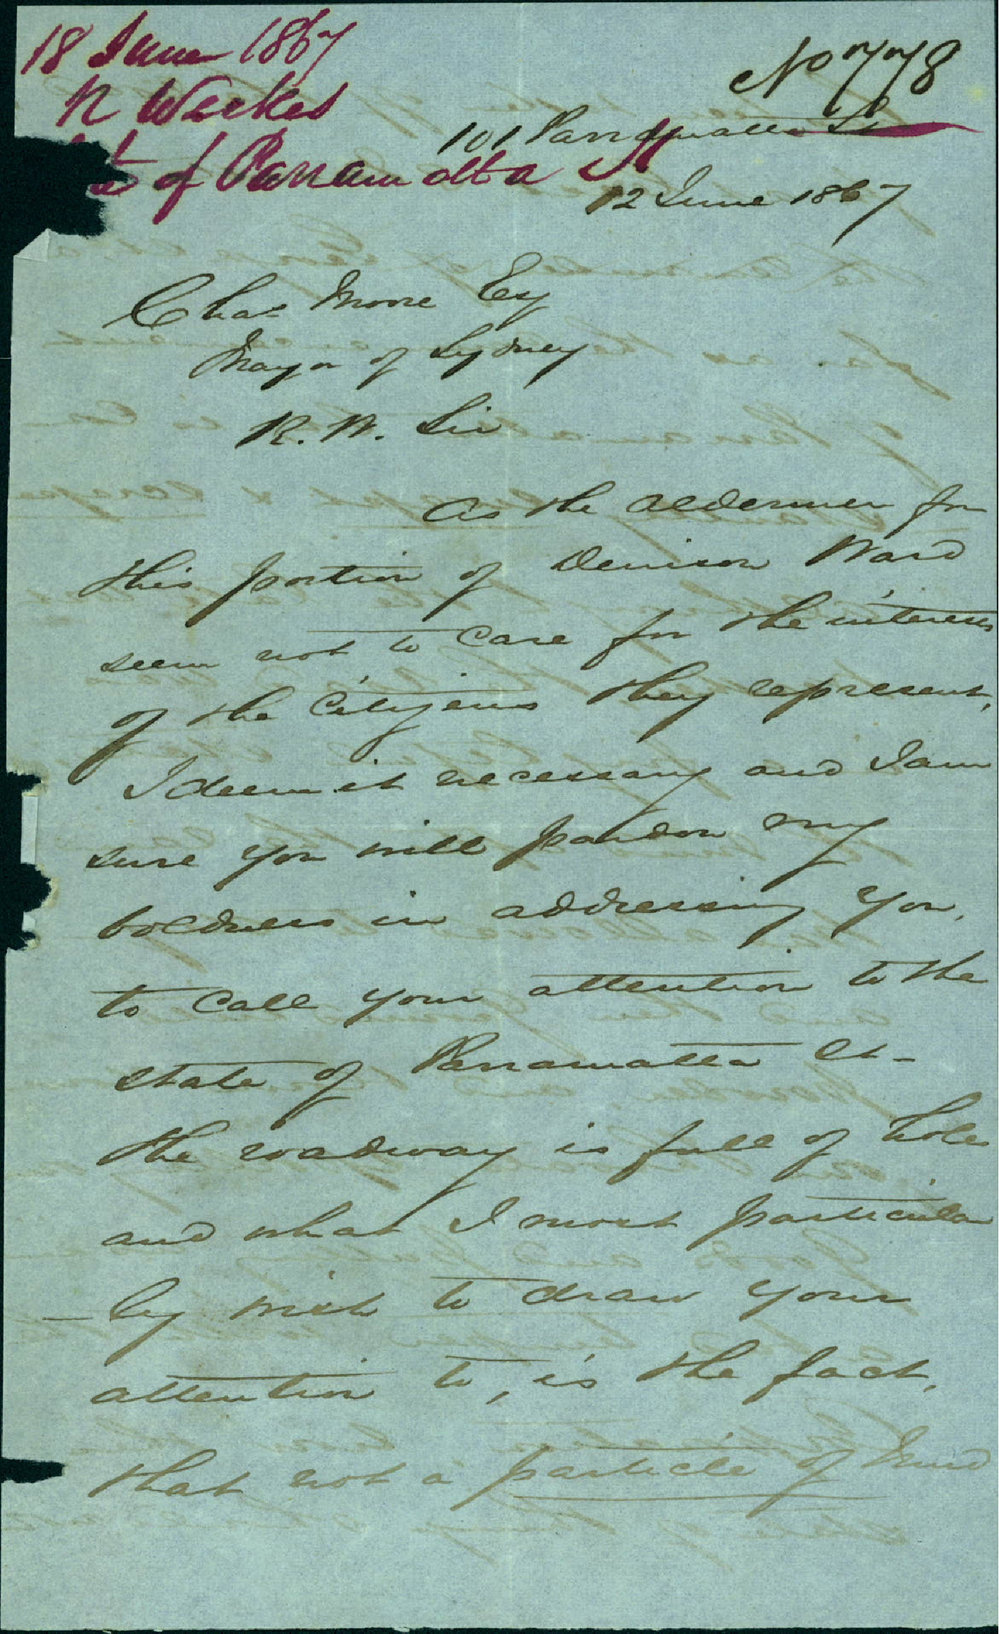 18 June 1867
N Weekes
of Parramatta St
No 778
101 Parramatta St
12 June 1867
Chas Moore Esq
Mayor of Sydney
R. W. Sir
As the aldermen for
this portion of Denison Ward
seem not to care for the interests
of the Citizens they represent,
I deem it necessary and I am
sure you will pardon my
boldness in addressing you,
to call your attention to the
state of Parramatta St-
the roadway is full of holes
and what I most particular
-ly wish to draw your
attention to, is the fact,
that not a particle of Mud